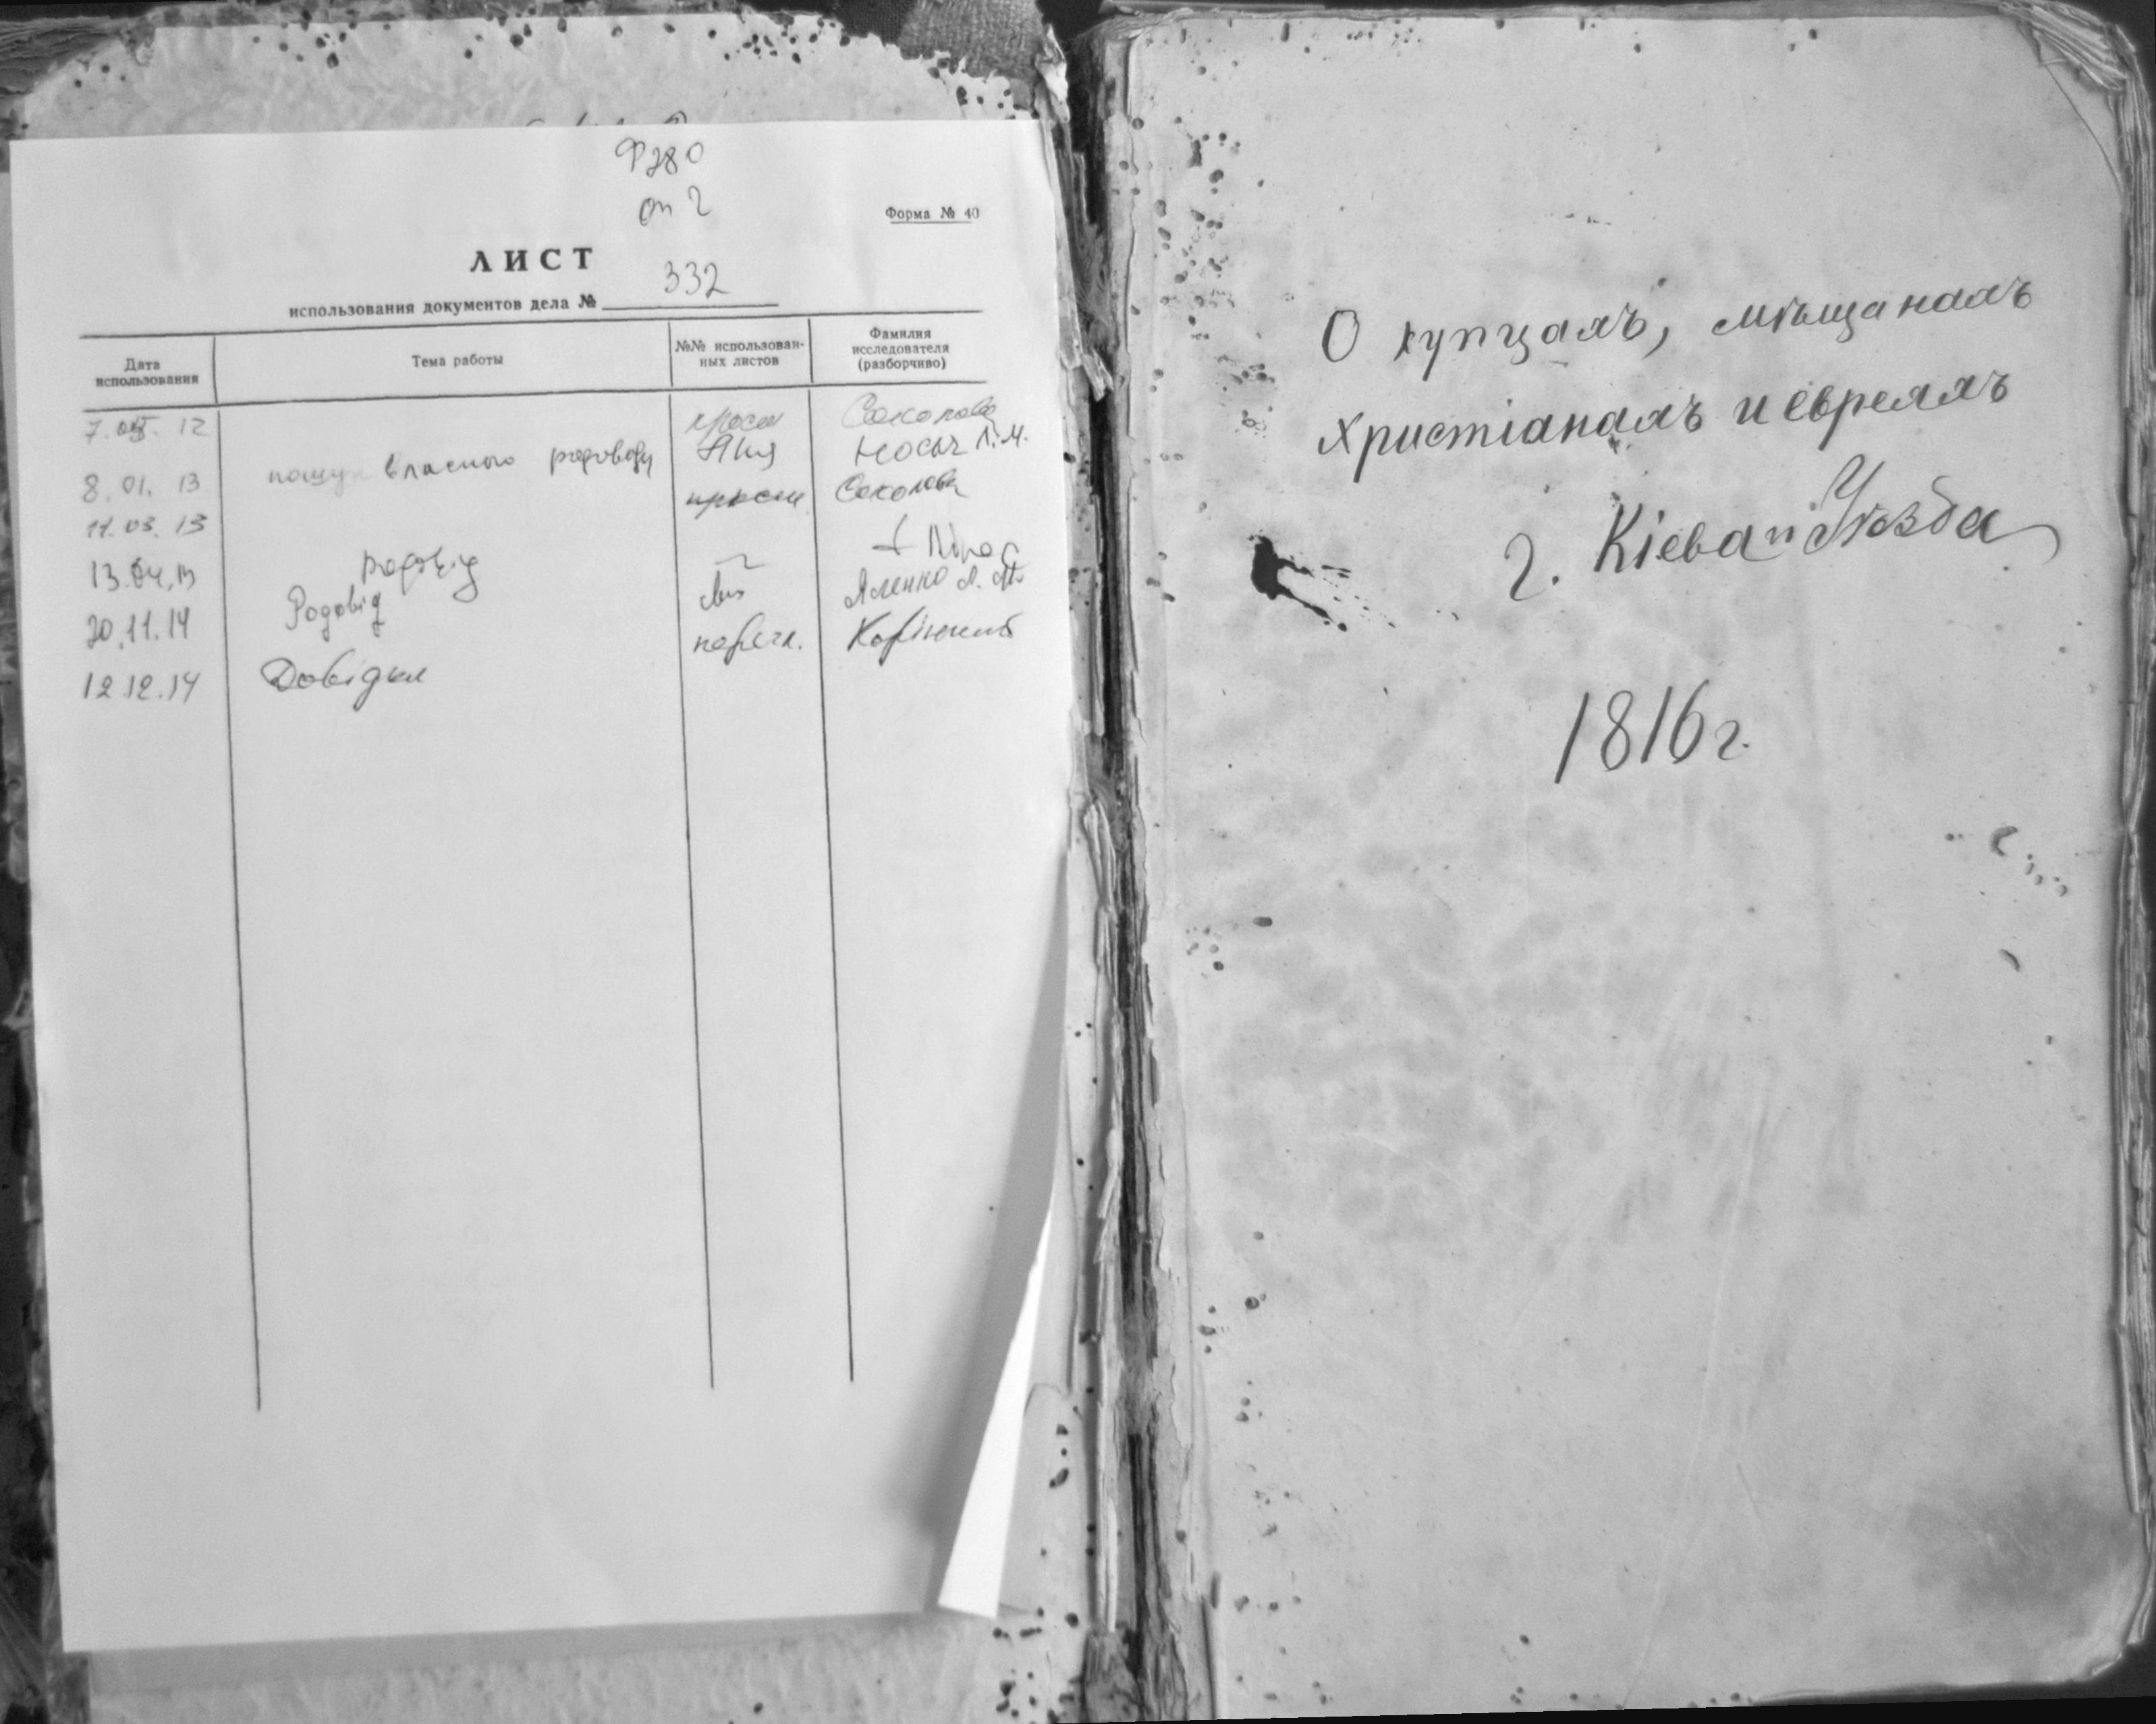 Ф 280
оп 2
Форма № 40
ЛИСТ
использования документов дела № 332
Дата использования
Тема работы
№№ использован-
ных листов
Фамилия
исследователя
(разборчиво)
7. 12 Соколова
пошук власного родоводу Носач Л.М.
8.01.13 Соколова
11.03.13
13.04.13 Родовід
20.11.14 Родовід
12.12.14 Довідка
О купцахъ, мѣщанахъ
христіанахъ и евреяхъ
г. Кіева и Уѣзда
1816 г.